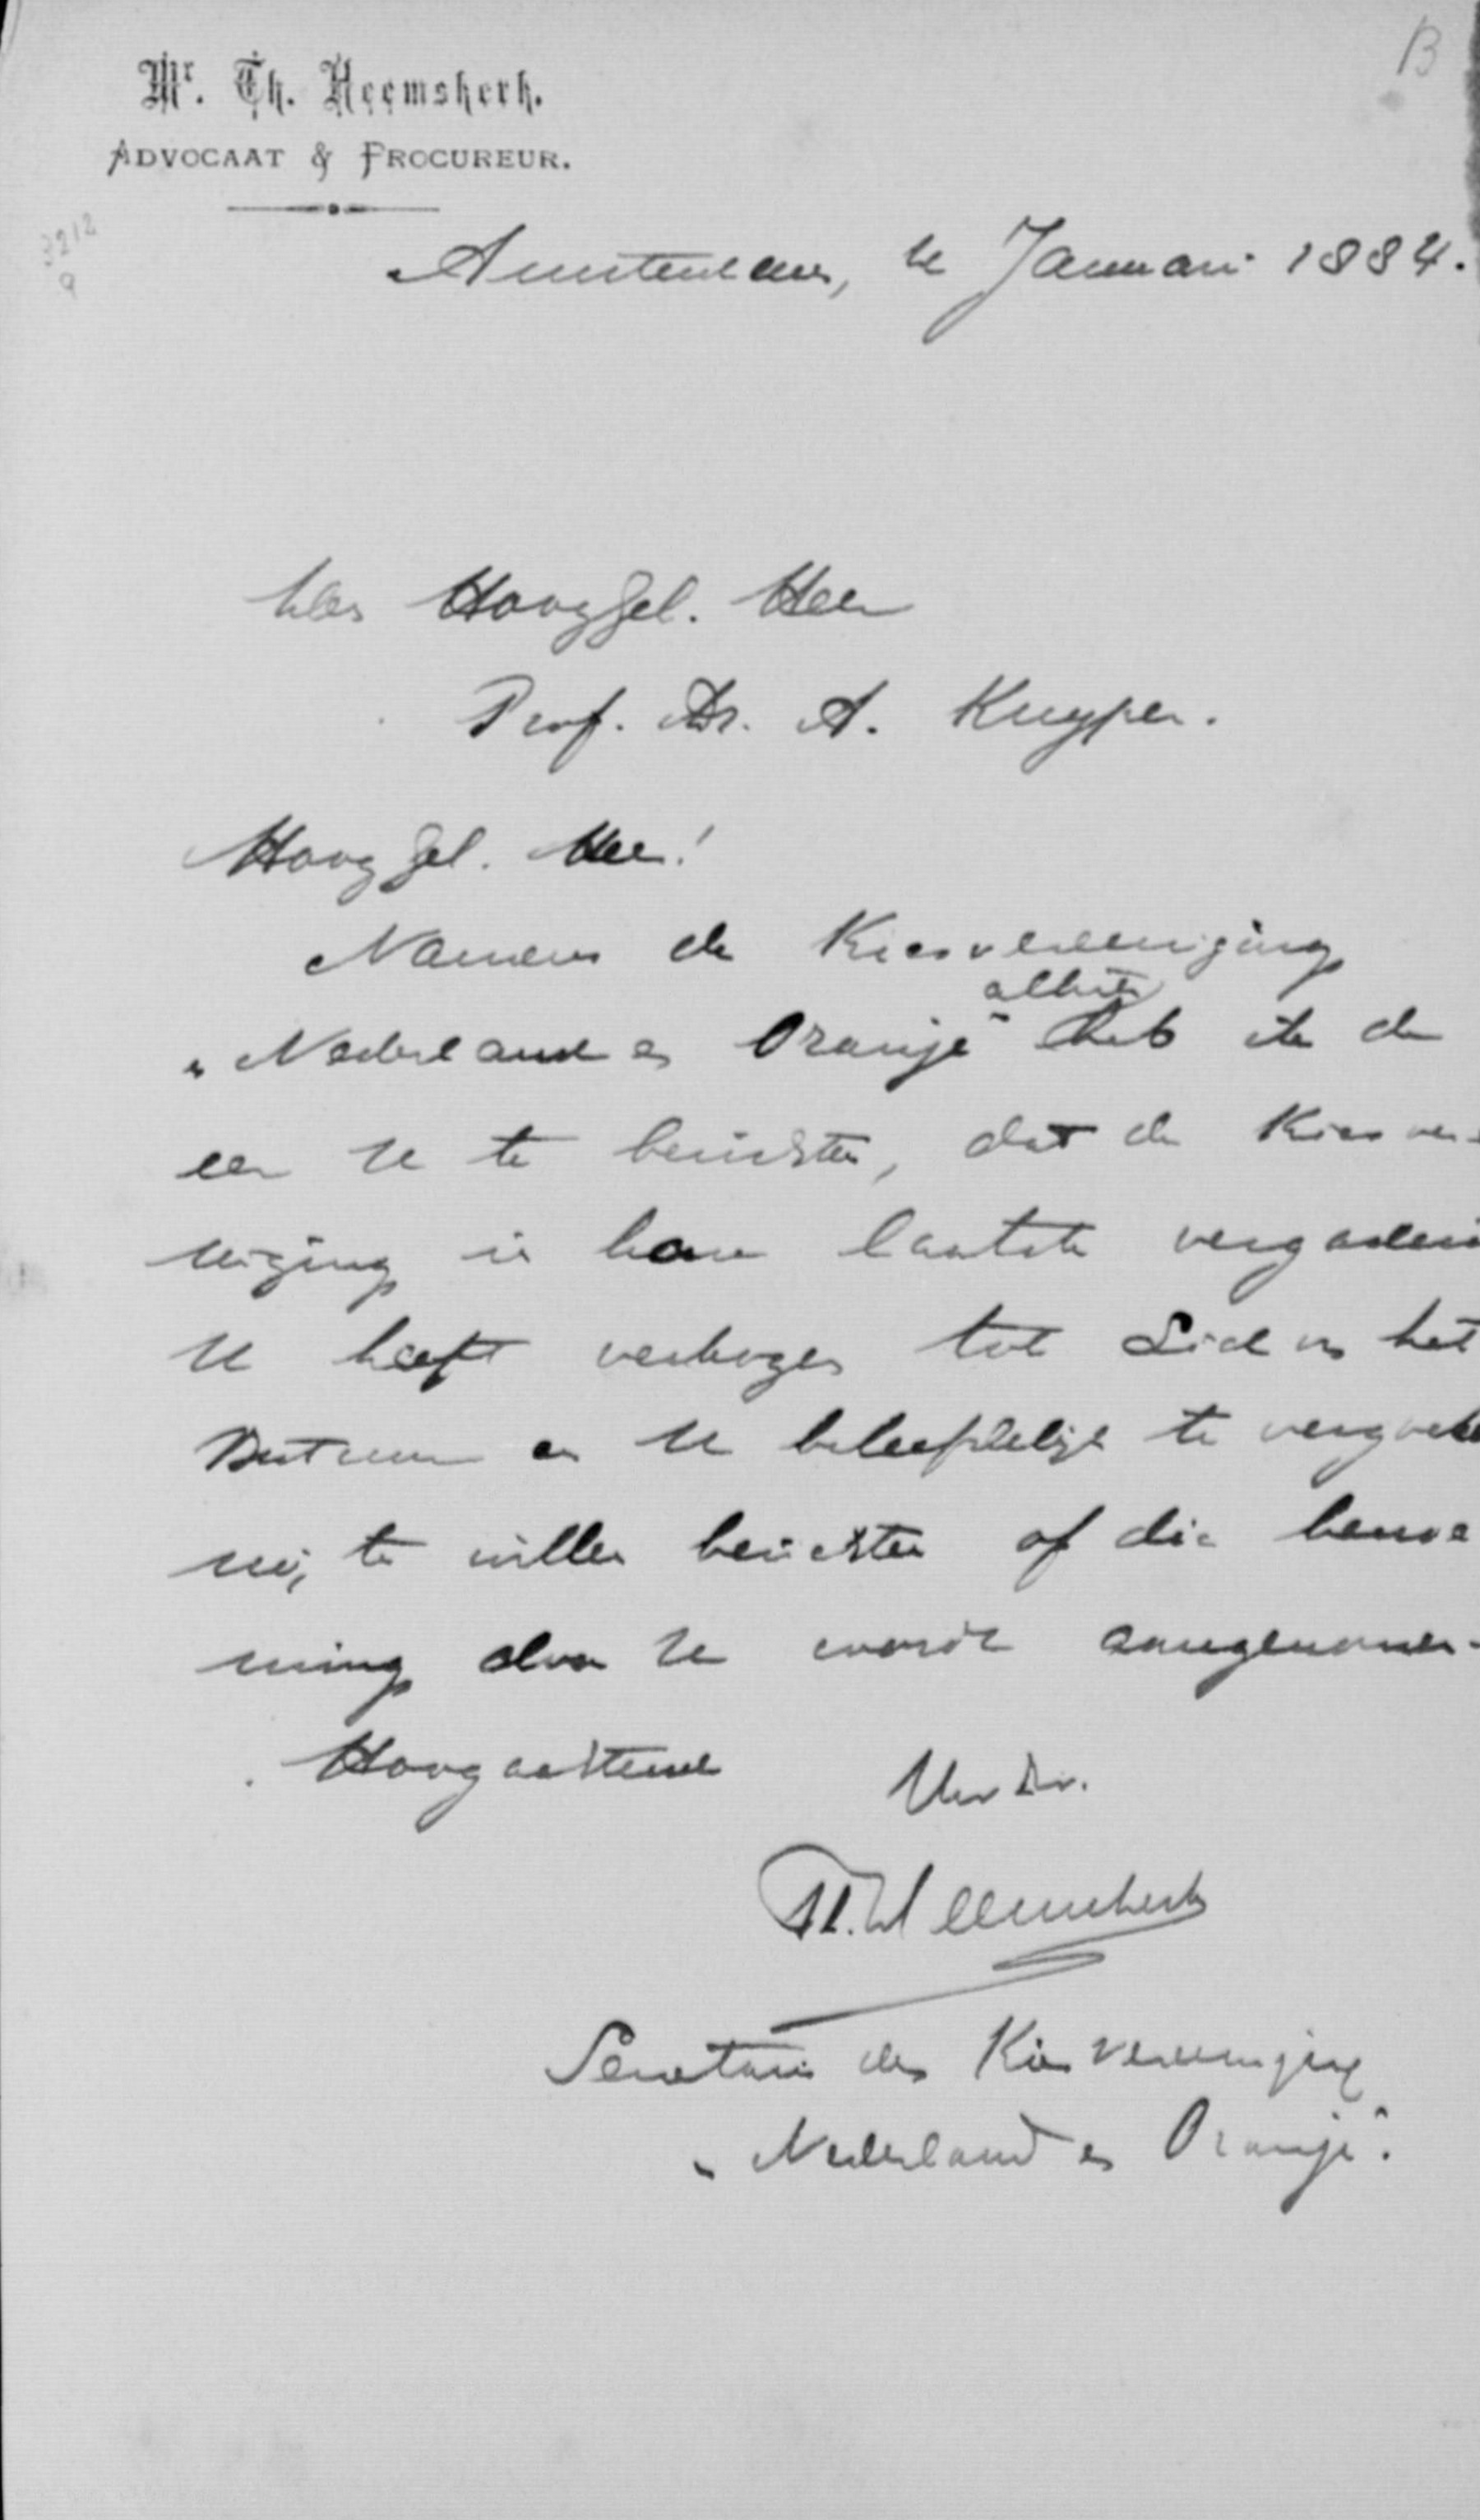 B
Mr. Th. Heemskerk.
ADVOCAAT & PROCUREUR.
3212
9
Amsterdam, Januari 1884.
Hoog Gel. Heer
Prof. Dr. A. Kuyper.
Hoog Gel. Heer!
Namens de Kiesvereeniging
alhier
„Nederland en Oranje" heb ik de
eer U te berichten, dat de Kiesver-
eeniging in hare laatste vergadering
U heeft verkozen tot Lid van het
Bestuur en U beleefdelijk te verzoeken
mij te willen berichten of die benoe
ming door U wordt aangenomen.
Hoogachtend
Uw Dr.
Th. Heemskerk
Secretaris der Kiesvereeniging
„Nederland en Oranje".